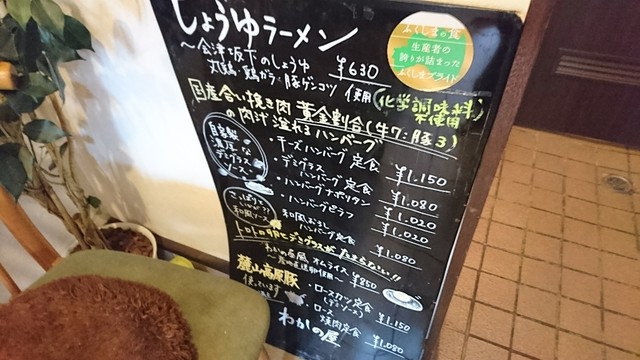 しょうゆラーメン
〜会津坂下のしょうゆ
丸鶏・鶏ガラ・豚ゲンコツ 使用
¥630
(化学調味料不使用)
ふくしまの食
生産者の
誇りが詰まった
ふくしまプライド
国産合い挽き肉 黄金割合(牛7:豚3)
の肉汁溢れるハンバーグ
自家製
濃厚な
デミグラス
ソース
・チーズハンバーグ定食 ¥1.150
・デミグラス
ハンバーグ定食 ¥1.080
・ハンバーグナポリタン ¥1.020
・ハンバーグピラフ ¥1.020
さっぱりと
和風ソース
和風おろし
ハンバーグ定食 ¥1.080
トロトロ卵とデミグラスがたまらない!!
わかの屋風 オムライス
¥850
麓山高原豚
使っています
・ロースカツ定食
(デミソース) ¥1.150
・ロース
焼肉定食 ¥1.080
わかの屋